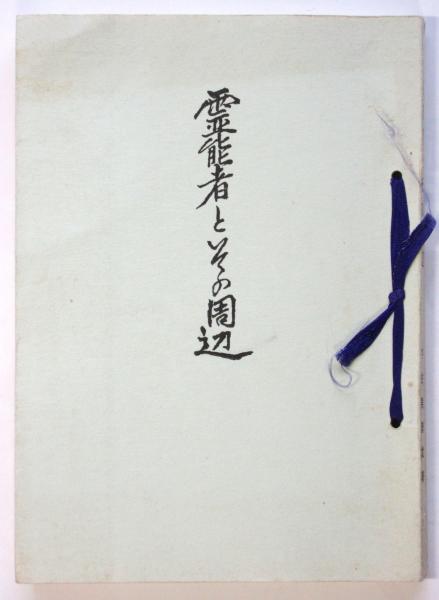 霊能者とその周辺